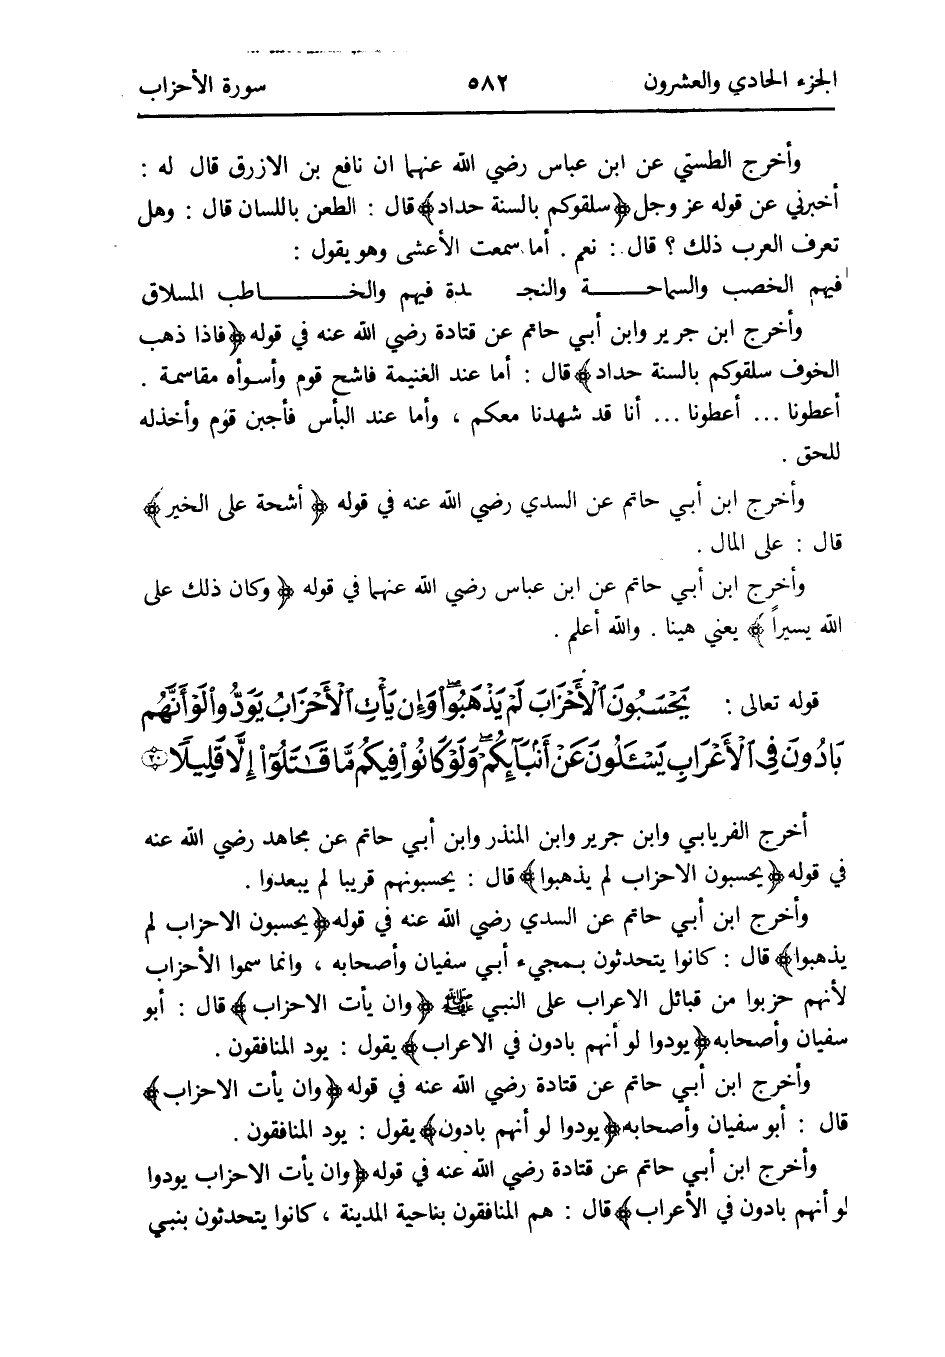 الجزء الحادي والعشرون ٥٨٢ سورة الأحزاب
وأخرج الطستي عن ابن عباس رضي الله عنهما ان نافع بن الازرق قال له :
أخبرني عن قوله عز وجل ﴿سلقوكم بالسنة حداد﴾ قال : الطعن باللسان قال : وهل
تعرف العرب ذلك ؟ قال : نعم . أما سمعت الأعشى وهو يقول :
فيهم الخصب والسماحـــــة والنجـ ـدة فيهم والخـــــــاطب المسلاق
وأخرج ابن جرير وابن أبي حاتم عن قتادة رضي الله عنه في قوله ﴿فاذا ذهب
الخوف سلقوكم بالسنة حداد﴾ قال : أما عند الغنيمة فاشح قوم وأسوأه مقاسمة .
أعطونا ... أعطونا ... أنا قد شهدنا معكم ، وأما عند البأس فأجبن قوم وأخذله
للحق .
وأخرج ابن أبي حاتم عن السدي رضي الله عنه في قوله ﴿ أشحة على الخير ﴾
قال : على المال .
وأخرج ابن أبي حاتم عن ابن عباس رضي الله عنهما في قوله ﴿ وكان ذلك على
الله يسيراً ﴾ يعني هينا . والله أعلم .
قوله تعالى : يَحْسَبُونَ ٱلْأَحْزَابَ لَمْ يَذْهَبُوا۟ ۖ وَإِن يَأْتِ ٱلْأَحْزَابُ يَوَدُّوا۟ لَوْ أَنَّهُم
بَادُونَ فِى ٱلْأَعْرَابِ يَسْـَٔلُونَ عَنْ أَنۢبَآئِكُمْ ۖ وَلَوْ كَانُوا۟ فِيكُم مَّا قَـٰتَلُوٓا۟ إِلَّا قَلِيلًا ٢٠
أخرج الفريابي وابن جرير وابن المنذر وابن أبي حاتم عن مجاهد رضي الله عنه
في قوله ﴿يحسبون الاحزاب لم يذهبوا﴾ قال : يحسبونهم قريبا لم يبعدوا .
وأخرج ابن أبي حاتم عن السدي رضي الله عنه في قوله ﴿يحسبون الاحزاب لم
يذهبوا﴾ قال : كانوا يتحدثون بمجيء أبي سفيان وأصحابه ، وانما سموا الأحزاب
لأنهم حزبوا من قبائل الاعراب على النبي ﷺ ﴿وان يأت الاحزاب﴾ قال : أبو
سفيان وأصحابه ﴿يودوا لو أنهم بادون في الاعراب﴾ يقول : يود المنافقون .
وأخرج ابن أبي حاتم عن قتادة رضي الله عنه في قوله ﴿وان يأت الاحزاب﴾
قال : أبو سفيان وأصحابه ﴿يودوا لو أنهم بادون﴾ يقول : يود المنافقون .
وأخرج ابن أبي حاتم عن قتادة رضي الله عنه في قوله ﴿وان يأت الاحزاب يودوا
لو أنهم بادون في الأعراب﴾ قال : هم المنافقون بناحية المدينة ، كانوا يتحدثون بنبي